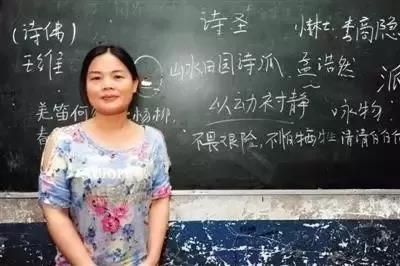 (诗佛) 诗圣 李商隐
王维 山水田园诗派 孟浩然 派
羌笛何 杨柳 以动衬静 咏物:
春 不畏艰险,不怕牺牲 清清白白